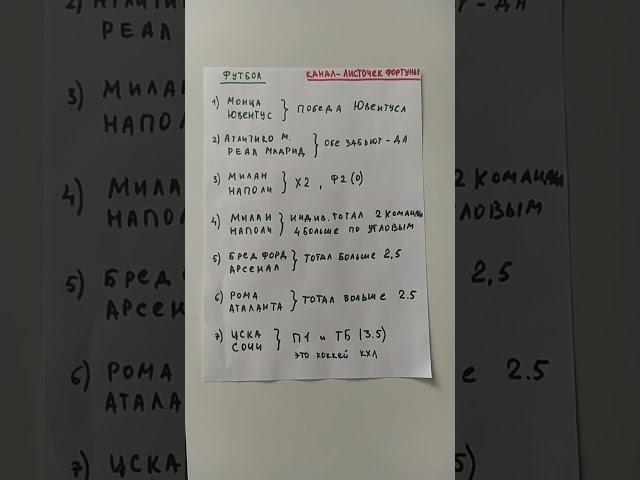 ФУТБОЛ КАНАЛ-ЛИСТОЧЕК ФОРТУНЫ
1) МОНЦА
ЮВЕНТУС } ПОБЕДА ЮВЕНТУСА
2) АТЛИТИКО М.
РЕАЛ МАДРИД } ОБЕ ЗАБЬЮТ-ДА
3) МИЛАН
НАПОЛИ } Х2, Ф2(0)
4) МИЛАН } ИНДИВ. ТОТАЛ 2 КОМАНДЫ
НАПОЛИ 4 БОЛЬШЕ ПО УГЛОВЫМ
5) БРЕДФОРД
АРСЕНАЛ } ТОТАЛ БОЛЬШЕ 2,5
6) РОМА
АТАЛАНТА } ТОТАЛ БОЛЬШЕ 2.5
7) ЦСКА
СОЧИ } П1 и ТБ (3.5)
ЭТО ХОККЕЙ КХЛ